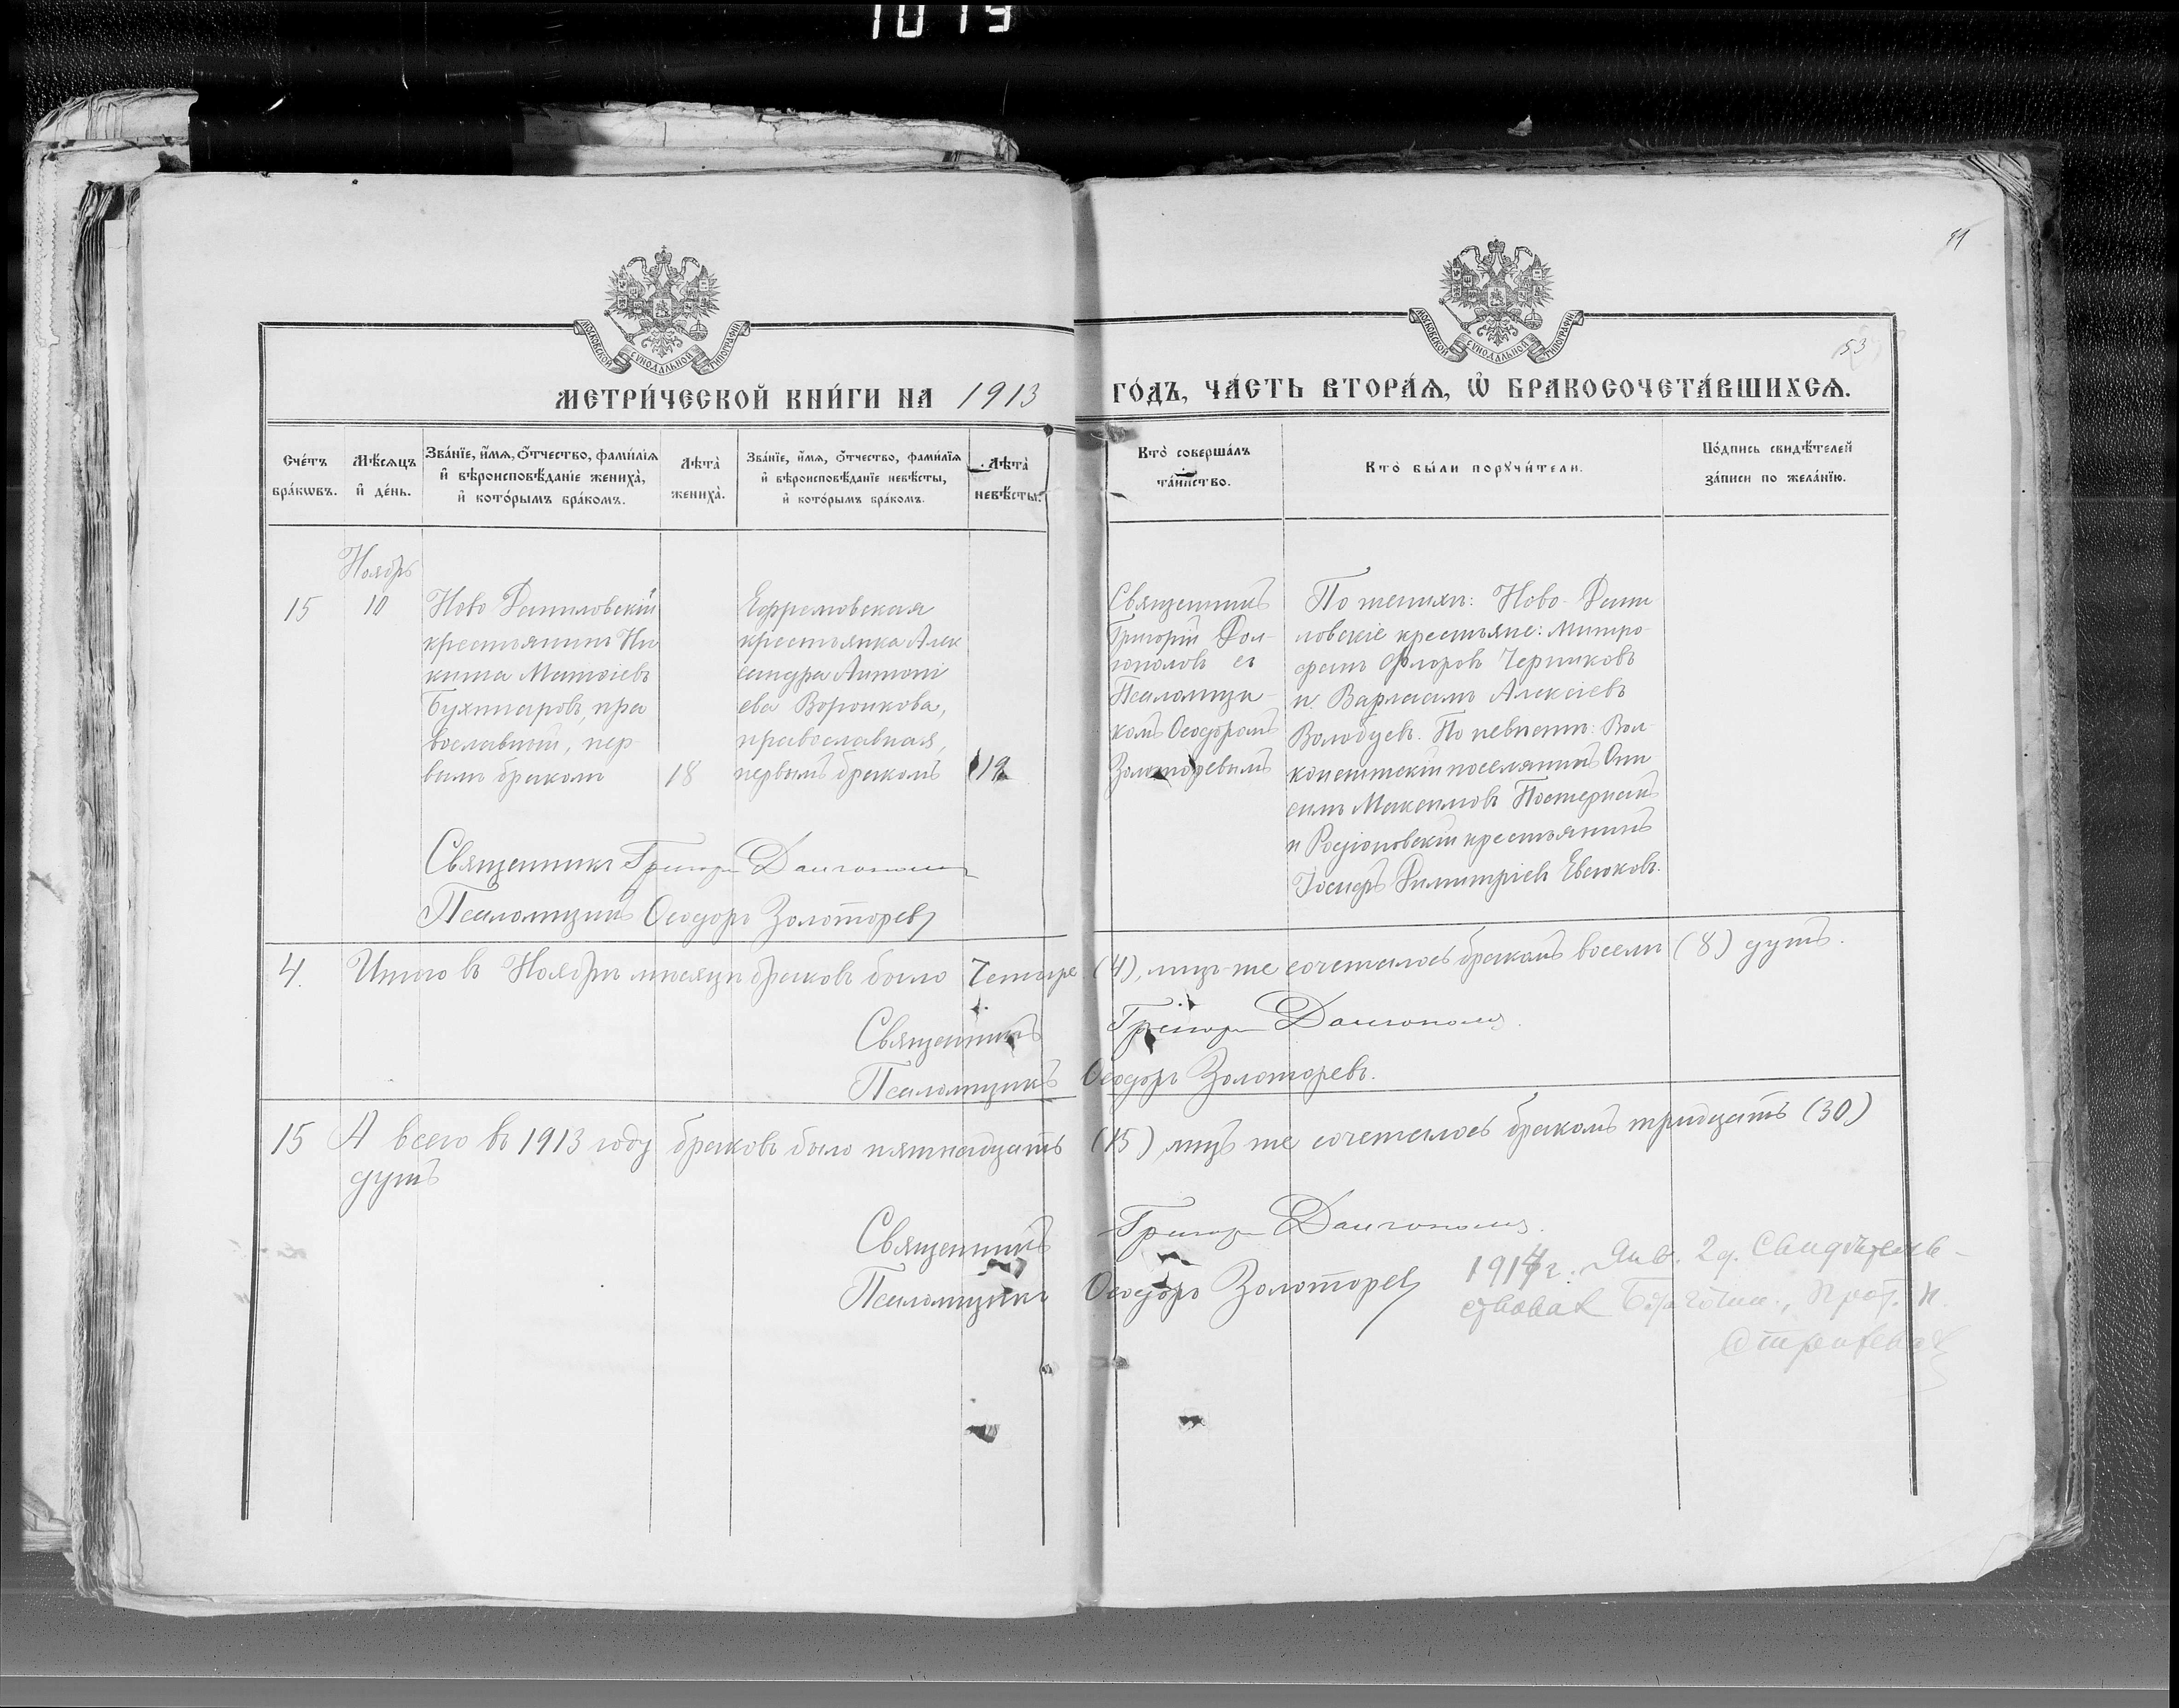 1019
81
53
МОСКОВСКОЙ СУНОДАЛЬНОЙ ТИПОГРАФІИ
МОСКОВСКОЙ СУНОДАЛЬНОЙ ТИПОГРАФІИ
МЕТРИ́ЧЕСКОЙ КНИ́ГИ НА 1913 ГО́ДЪ, ЧА́СТЬ ВТОРА́Я, Ѡ БРАКОСОЧЕТА́ВШИХСЯ.
Сче́тъ бра́кѡвъ.
Мѣ́сяцъ и де́нь.
Зва́нїе, и́мя, ѻ́тчество, фами́лїя и вѣроисповѣ́данїе жениха̀, и кото́рымъ бра́комъ.
Лѣта̀ жениха̀.
Зва́нїе, и́мя, ѻ́тчество, фами́лїя и вѣроисповѣ́данїе невѣ́сты, и кото́рымъ бра́комъ.
Лѣта̀ невѣ́сты.
Кто̀ соверша́лъ та́инство.
Кто̀ бы́ли поручи́тели.
По́дпись свидѣ́телей за́писи по жела́нїю.
Ноябрь
15
10
Ново Даниловскій
крестьянинъ Ни
кита Матѳіевъ
Бухтіаровъ, пра
вославный, пер
вымъ бракомъ
18
Ефремовская
крестьянка Алек
сандра Антоні
ева Воронкова,
православная,
первымъ бракомъ
19
Священникъ
Григорій Дол-
гополовъ съ
Псаломщи-
комъ Ѳеодоромъ
Золоторевымъ
По женихѣ: Ново-Дани
ловскіе крестьяне: Митро-
фанъ Флоровъ Черниковъ
и Варлаамъ Алексіевъ
Володцев. По невѣстѣ: Вол-
конештскій поселянинъ Они
симъ Максимовъ Постернакъ
и Родіоновскій крестьянинъ
Іосифъ Димитріевъ Евсюковъ.
Священникъ Григорій Долгополовъ
Псаломщикъ Ѳеодоръ Золоторевъ
4. Итого въ Ноябрѣ мѣсяцѣ браковъ было четыре (4), лицъ-же сочеталось бракомъ восемь (8) душъ.
Священникъ Григорій Долгополовъ.
Псаломщикъ Ѳеодоръ Золоторевъ.
15 А всего въ 1913 году браковъ было пятнадцать (15), лицъ же сочеталось бракомъ тридцать (30)
душъ
Священникъ Григорій Долгополовъ.
Псаломщикъ Ѳеодоръ Золоторевъ
1914 г. Янв. 2 д. Свидѣтель-
ствовалъ Благочин., Прот. Н.